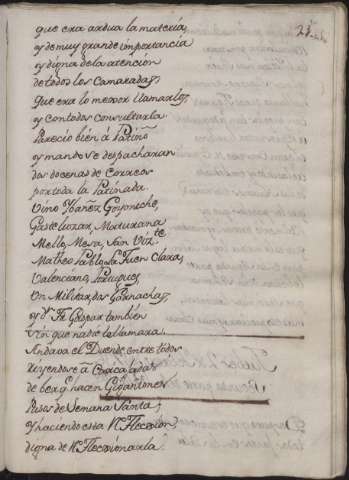 21.
que era ardua la materia,
y de muy grande importancia
y digna de la atencion
de todos los Camaradas,
que era lo mexor llamarlos,
y con todos consultarla.
Parecio bien á Patiño
y mando se despacharan
dos docenas de Correos
por toda la Patinada
Vino Ybañez, Goyeneche,
Gasteluzar,
Mello, Mesa, San Viz.te
Matheo Pablo, la Fuen Clara,
Valenciano,
Un Militar, dos Garnachas,
y D.n Fr. Gaspar tambien
sin que nadie le llamara.
Andava el Duende entre todos
riyendose a Carcajadas
de ber q.e hacen Gigantones
Pasos de Semana Santa;
y haciendo esta Reflecsion,
digna de Reflecsionarla.